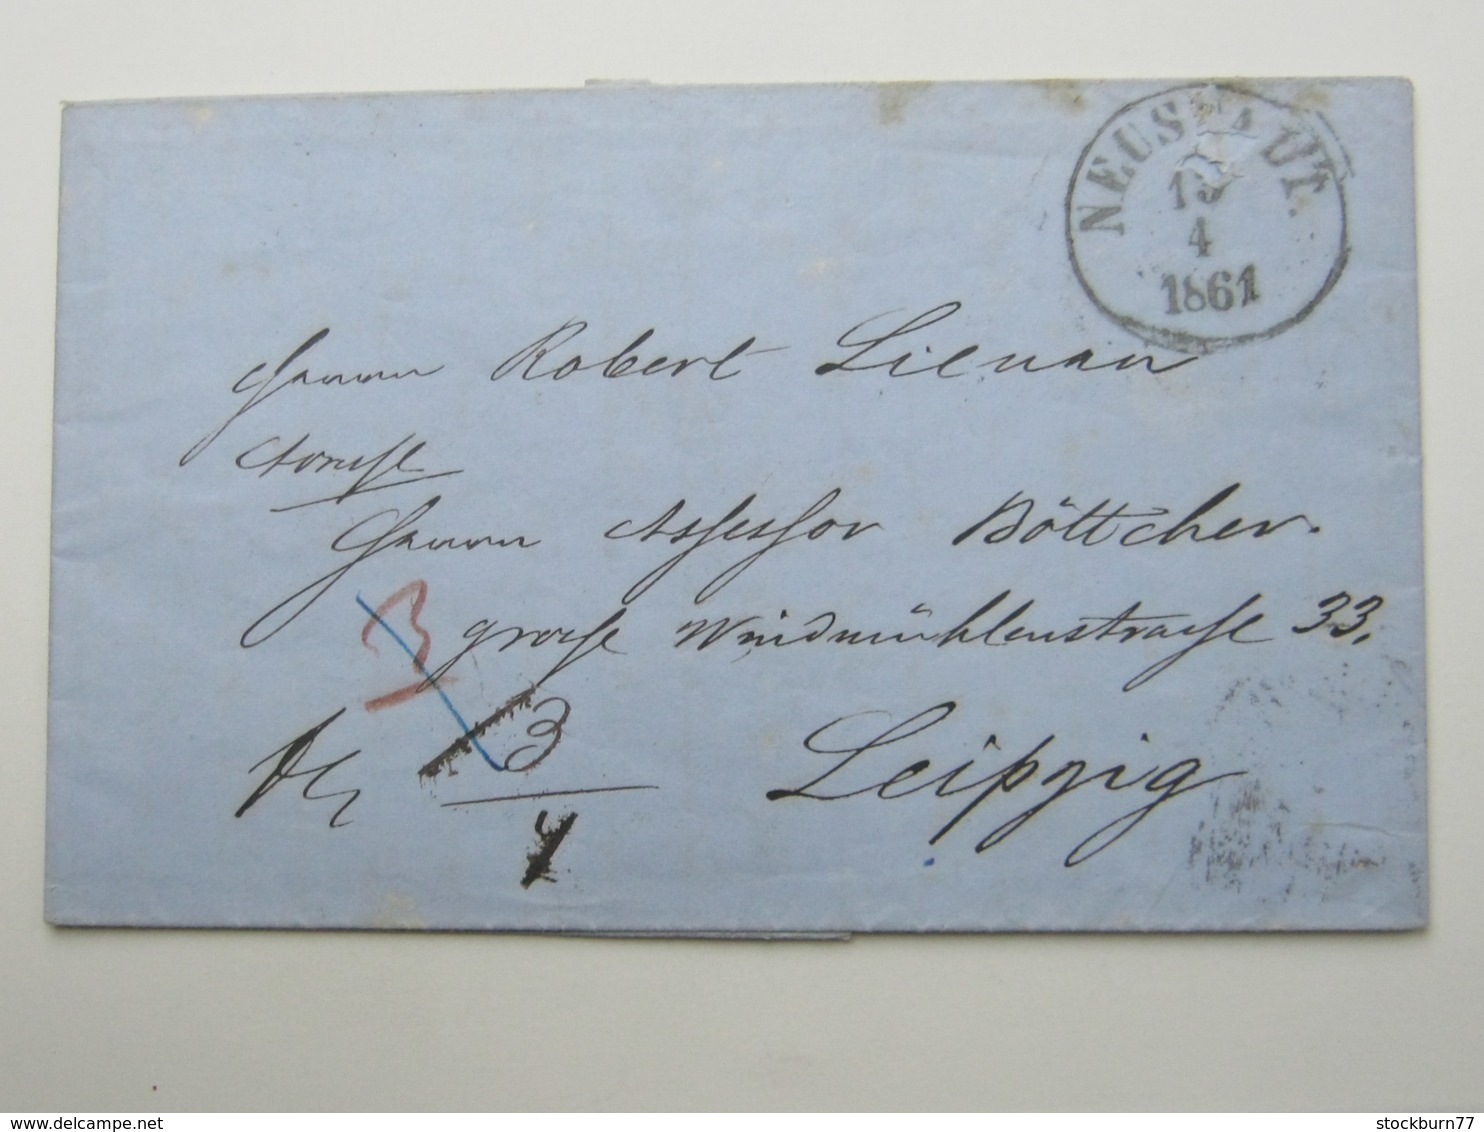 NEUSTADT.
19
4
1861
Herrn Robert Lienau
Adresse
Herrn Assessor Böttcher.
3 grosse Windmühlenstrasse 33.
3
Leipzig
delcampe.net
stockburn77